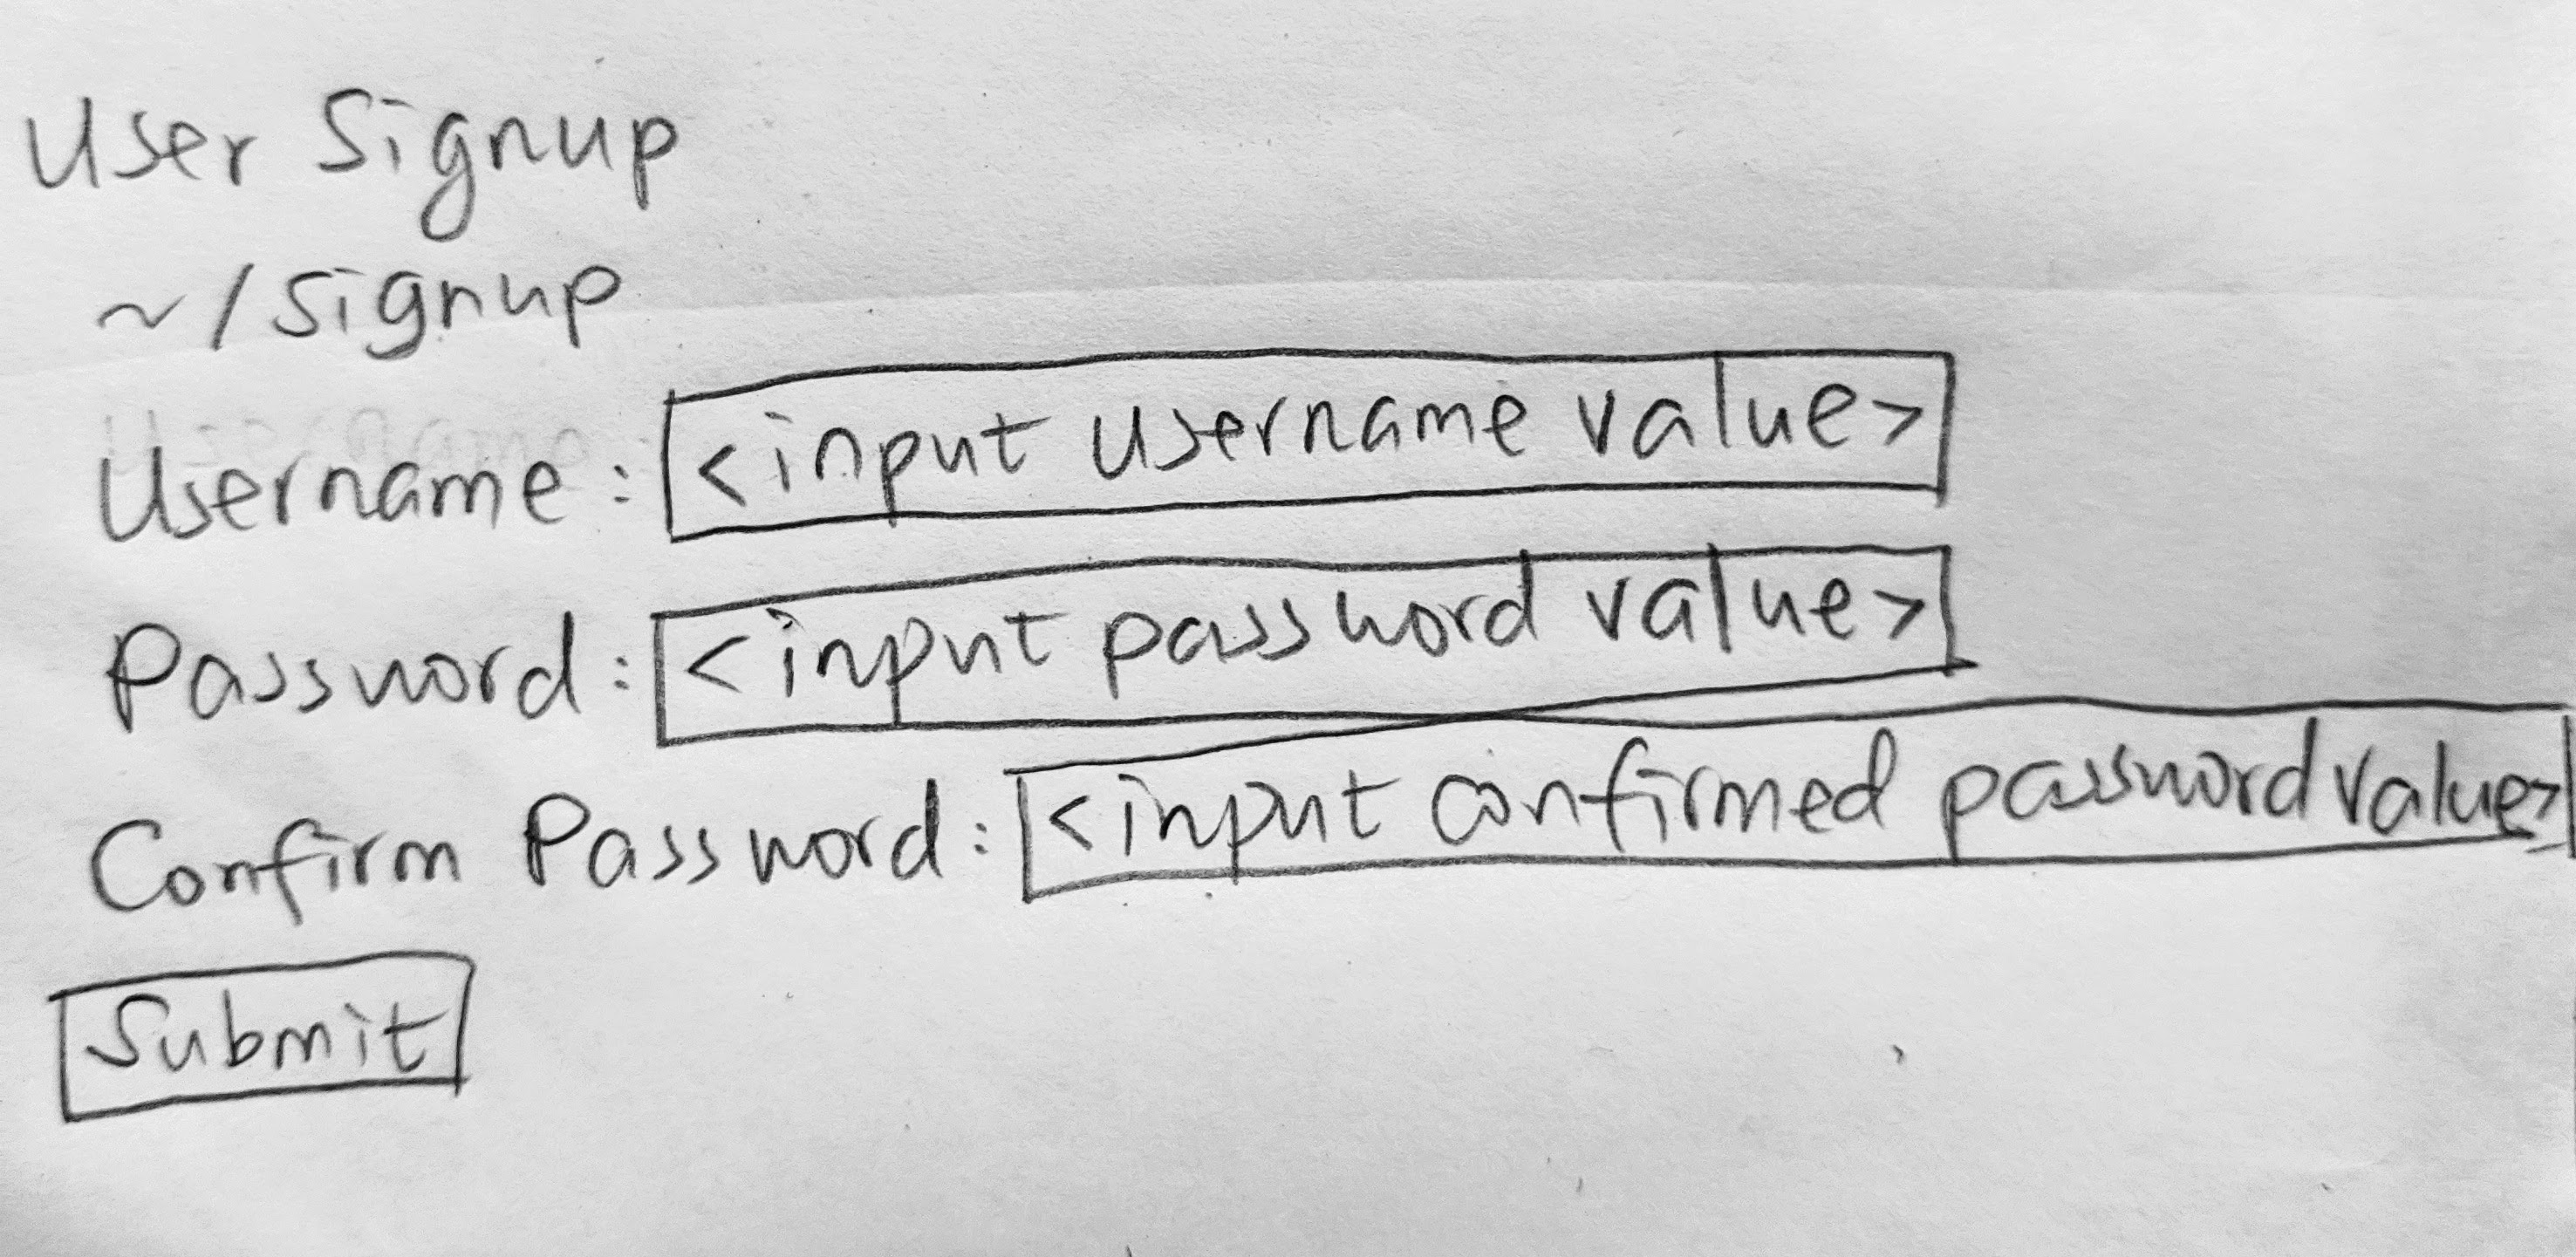 User Signup
~/signup
Username: <input username value>
Password: <input password value>
Confirm Password: <input confirmed password value>
Submit